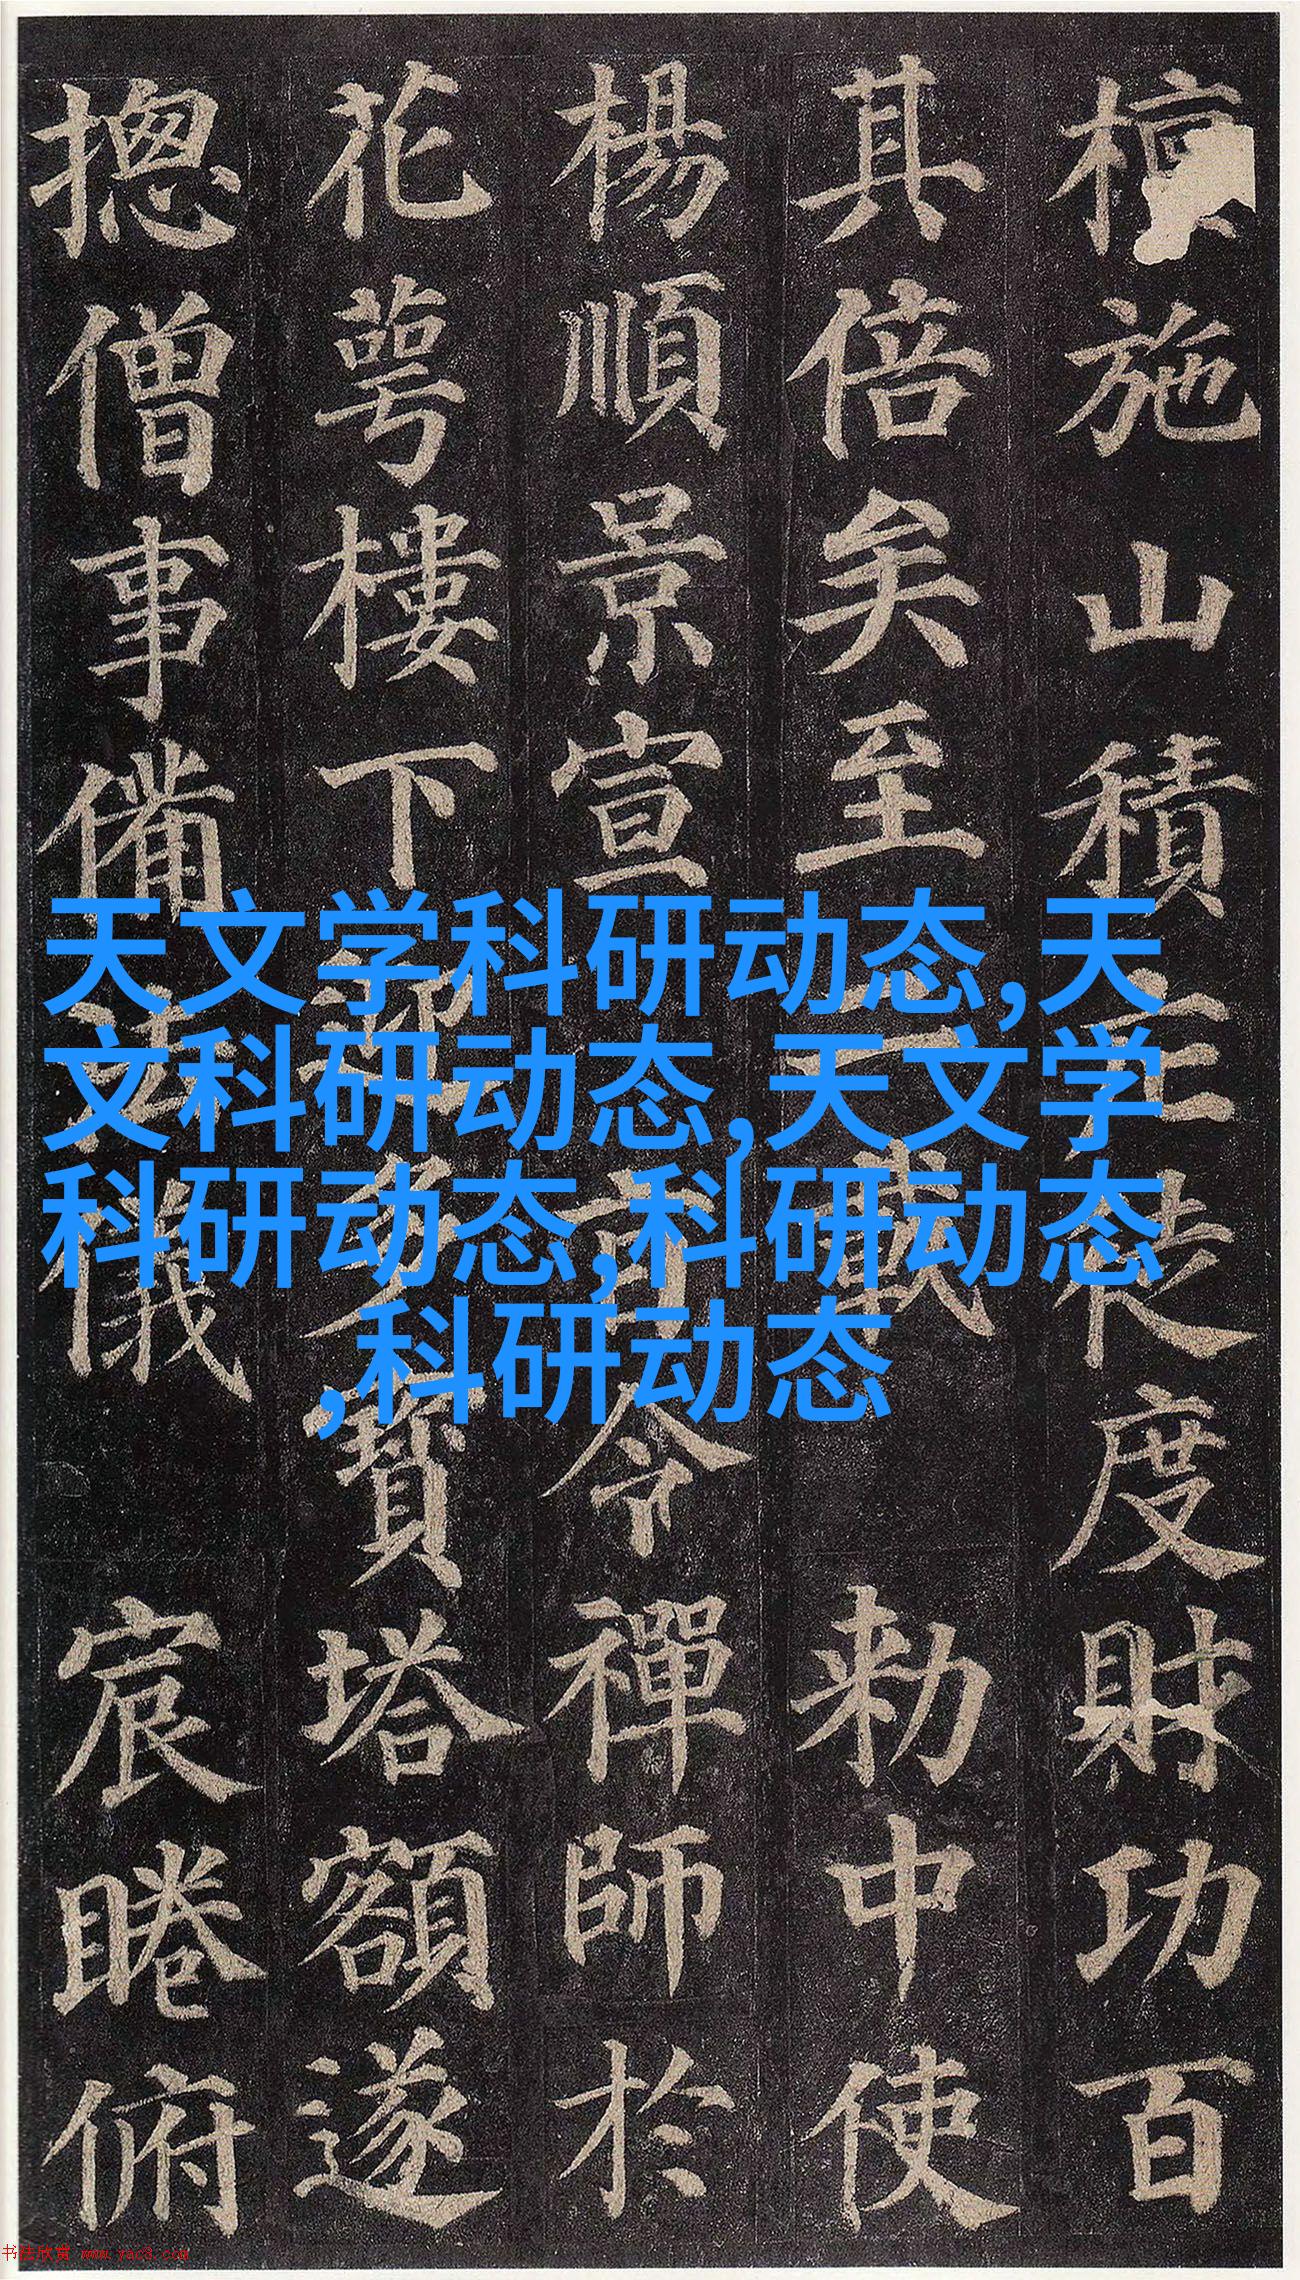 施山積徒度財功百
其倍矣至二載勑中使
楊順景宣令禪師於
花萼樓下迎多寶塔額遂
揔僧事備法儀宸睠俯
天文学科研动态,天
文科研动态,天文学
科研动态,科研动态
,科研动态
书法欣赏 www.yac3.com